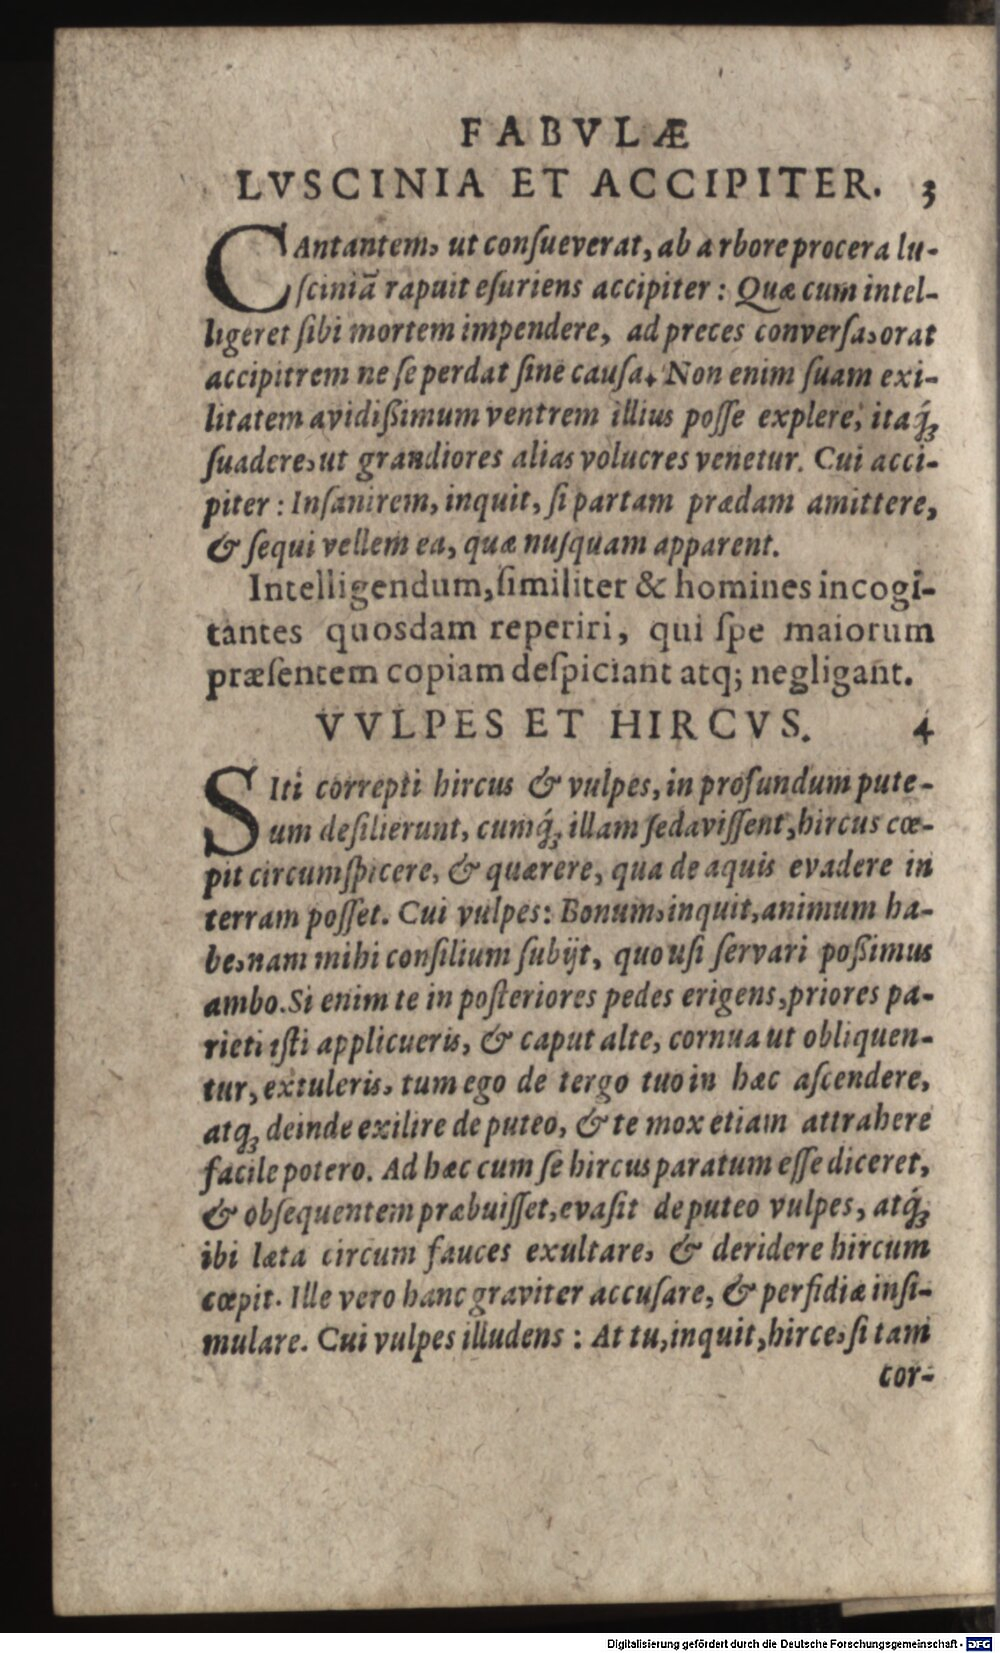 FABVLÆ
LVSCINIA ET ACCIPITER. 3
CAntantem, ut conſueverat, ab a rbore procera lu-
ſciniã rapuit eſuriens accipiter : Quæ cum intel-
ligeret ſibi mortem impendere, ad preces converſa, orat
accipitrem ne ſe perdat ſine cauſa. Non enim ſuam exi-
litatem avidißimum ventrem illius poſſe explere, itaq́;
ſuadere, ut grandiores alias volucres venetur. Cui acci-
piter : Inſanirem, inquit, ſi partam prædam amittere,
& ſequi vellem ea, quæ nuſquam apparent.
Intelligendum, ſimiliter & homines incogi-
tantes quosdam reperiri, qui ſpe maiorum
præſentem copiam deſpiciant atq; negligant.
VVLPES ET HIRCVS. 4
SIti correpti hircus & vulpes, in profundum pute-
um deſilierunt, cumq́; illam ſedaviſſent, hircus cœ-
pit circumſpicere, & quærere, qua de aquis evadere in
terram poſſet. Cui vulpes: Bonum, inquit, animum ha-
be, nam mihi conſilium ſubijt, quo uſi ſervari poßimus
ambo. Si enim te in poſteriores pedes erigens, priores pa-
rieti iſti applicueris, & caput alte, cornua ut obliquen-
tur, extuleris, tum ego de tergo tuo in hæc aſcendere,
atq; deinde exilire de puteo, & te mox etiam attrahere
facile potero. Ad hæc cum ſe hircus paratum eſſe diceret,
& obſequentem præbuiſſet, evaſit de puteo vulpes, atq́;
ibi læta circum fauces exultare, & deridere hircum
cœpit. Ille vero hanc graviter accuſare, & perfidiæ inſi-
mulare. Cui vulpes illudens : At tu, inquit, hirce, ſi tam
cor-
Digitalisierung gefördert durch die Deutsche Forschungsgemeinschaft - DFG